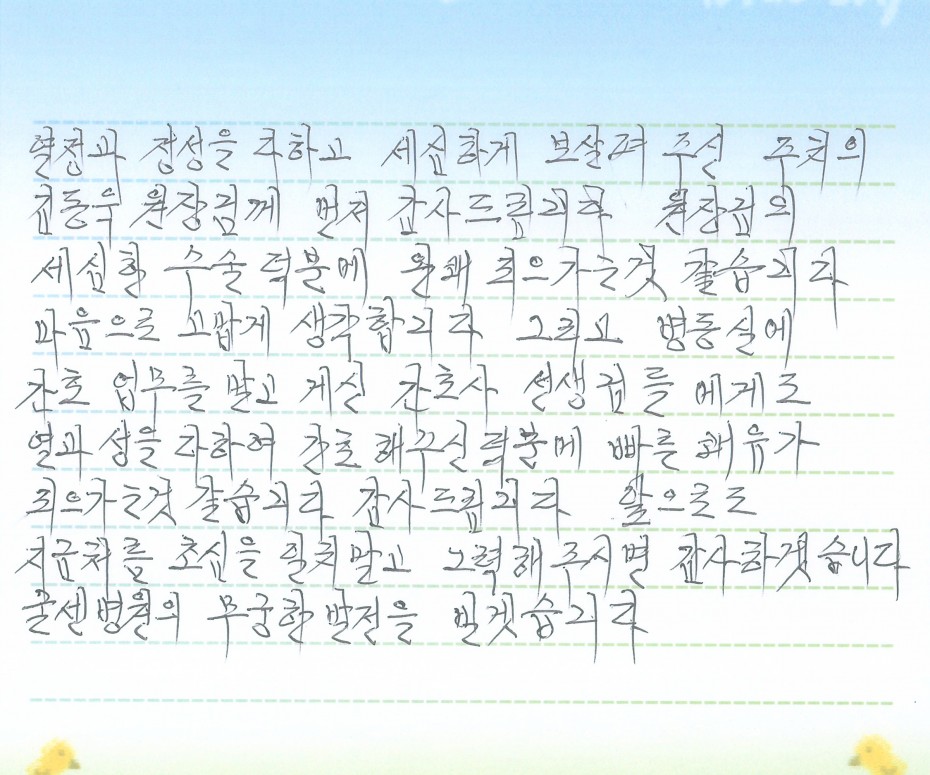 열정과 정성을 다하고 세심하게 보살펴 주신 주치의
김동우 원장님께 먼저 감사드립니다 원장님의
세심한 수술 덕분에 완쾌 되으가는것 같습니다
마음으로 고맙게 생각합니다 그리고 병동실에
간호 업무를 말고 계신 간호사 선생님들 에게도
열과 성을 다하여 간호 해주신 덕분에 빠른 쾌유가
되으가는것 같습니다 감사드립니다 앞으로도
지금처름 초심을 잃치말고 노력해 주시면 감사하겟습니다
굿센병원의 무궁한 발전을 빌겟습니다